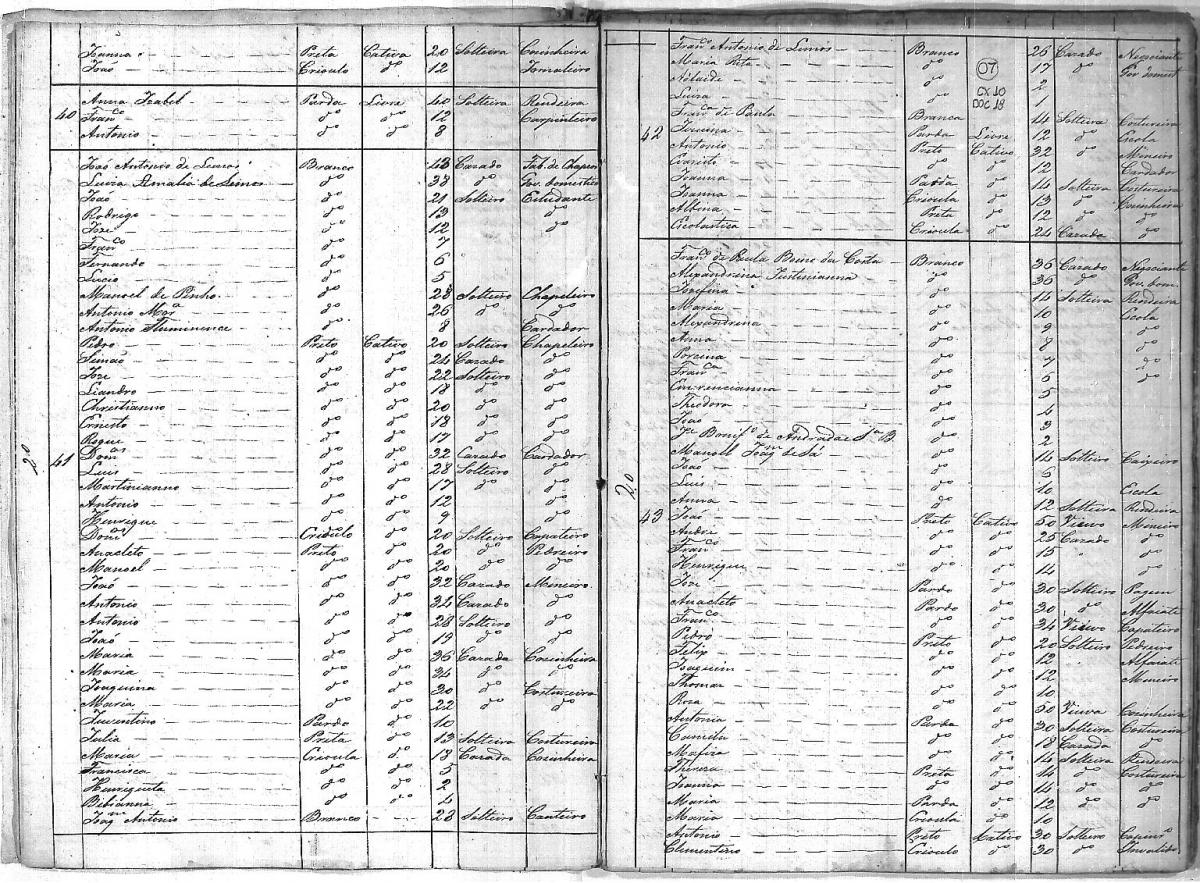 Joanna Preta Cativa 20 Solteira Cosinheira
João Crioulo do 12 Jornaleiro
40
Anna Izabel Parda Livre 40 Solteira Rendeira
Franco do do 12 Carpinteiro
Antonio do do 8
20
41
José Antonio de Lemos Branco 43 Cazado Fab. de Chapeos
Luiza Amalia de Lemos do 38 do Gov. domestico
João do 21 Solteiro Estudante
Rodrigo do 13 do
José do 12 do
Franco do 7
Fernando do 6
Lucio do 5
Manoel de Pinho do 28 Solteiro Chapeleiro
Antonio Mor.a do 26 do do
Antonio Fluminence do 8 Cardador
Pedro Preto Cativo 20 Solteiro Chapeleiro
Simão do do 24 Cazado do
José do do 22 Solteiro do
Liandro do do 18 do do
Christianno do do 20 do do
Ernesto do do 18 do do
Roque do do 17 do do
Domos do do 32 Cazado Cardador
Luis do do 28 Solteiro do
Martinianno do do 17 do do
Antonio do do 12
Henrique do do 9
Domos Crioulo do 20 Solteiro Çapateiro
Anacleto Preto do 20 do Pedreiro
Manoel do do 20 do do
João do do 32 Cazado Mineiro
Antonio do do 34 Cazado do
Antonio do do 28 Solteiro do
João do do 19 do do
Maria do do 36 Cazada Cosinheira
Maria do do 34 do do
Joaquina do do 30 do Costureira
Maria do do 22 do do
Juventino Pardo do 10
Julia Preta do 13 Solteira Costureira
Maria Crioula do 18 Cazada Cosinheira
Francisca do do 3
Henriqueta do do 2
Bibianna do do 4
Joaqm Antonio Branco 23 Solteiro Canteiro
07
CX 10
DOC 18
42
Franco Antonio de Lemos Branco 26 Cazado Negociante
Maria Rita do 17 do Gov. domest
Adelaide do 2
Luiza do 1
Franca de Paula Branca 14 Solteira Costureira
Parda Livre 12 do Escola
Antonio Preto Cativo 32 do Mineiro
Evaristo do do 12 Cardador
Joanna Parda do 14 Solteira Costureira
Joanna Crioula do 13 do Cosinheira
Albina Preta do 12 do do
Escolastica Crioula do 24 Cazada do
20
43
Franco de Paula Bueno da Costa Branco 36 Cazado Negociante
Alexandrina Justinianna do 36 do Gov. dom.
Josefina do 14 Solteira Rendeira
Maria do 10 Escola
Alexandrina do 9 do
Anna do 8 do
Porcina do 7 do
Franca do 6 do
do 5
Theodora do 4
João do 3
Je Bonifo de Andrada e Sa B. do 2
Manoel Joaqm de Sá do 14 Solteiro Caixeiro
João do 6
Luis do 10 Escola
Anna do 12 Solteira Rendeira
João Preto Cativo 50 Viuvo Mineiro
André do do 25 Cazado do
Franco do do 15 do
Henrique do do 14 do
José Pardo do 30 Solteiro Pagem
Anacleto Pardo do 30 do Alfaiate
Franco do do 34 Viuvo Çapateiro
Pedro Preto do 20 Solteiro Pedreiro
Felip do do 12 Alfaiate
Joaquim do do 12 Mineiro
Thomaz do do 10
Roza do do 50 Viuva Cosinheira
Antonia Parda do 30 Solteira Costureira
Camilla do do 18 Cazada do
Mafiza do do 14 Solteira Rendeira
Thereza Preta do 14 do Costureira
Joanna do do 14 do
Maria Parda do 12 do do
Maria Crioula do 10
Antonio Preto Cativo 30 Solteiro Capino
Clementino Crioulo do 30 do Invalido